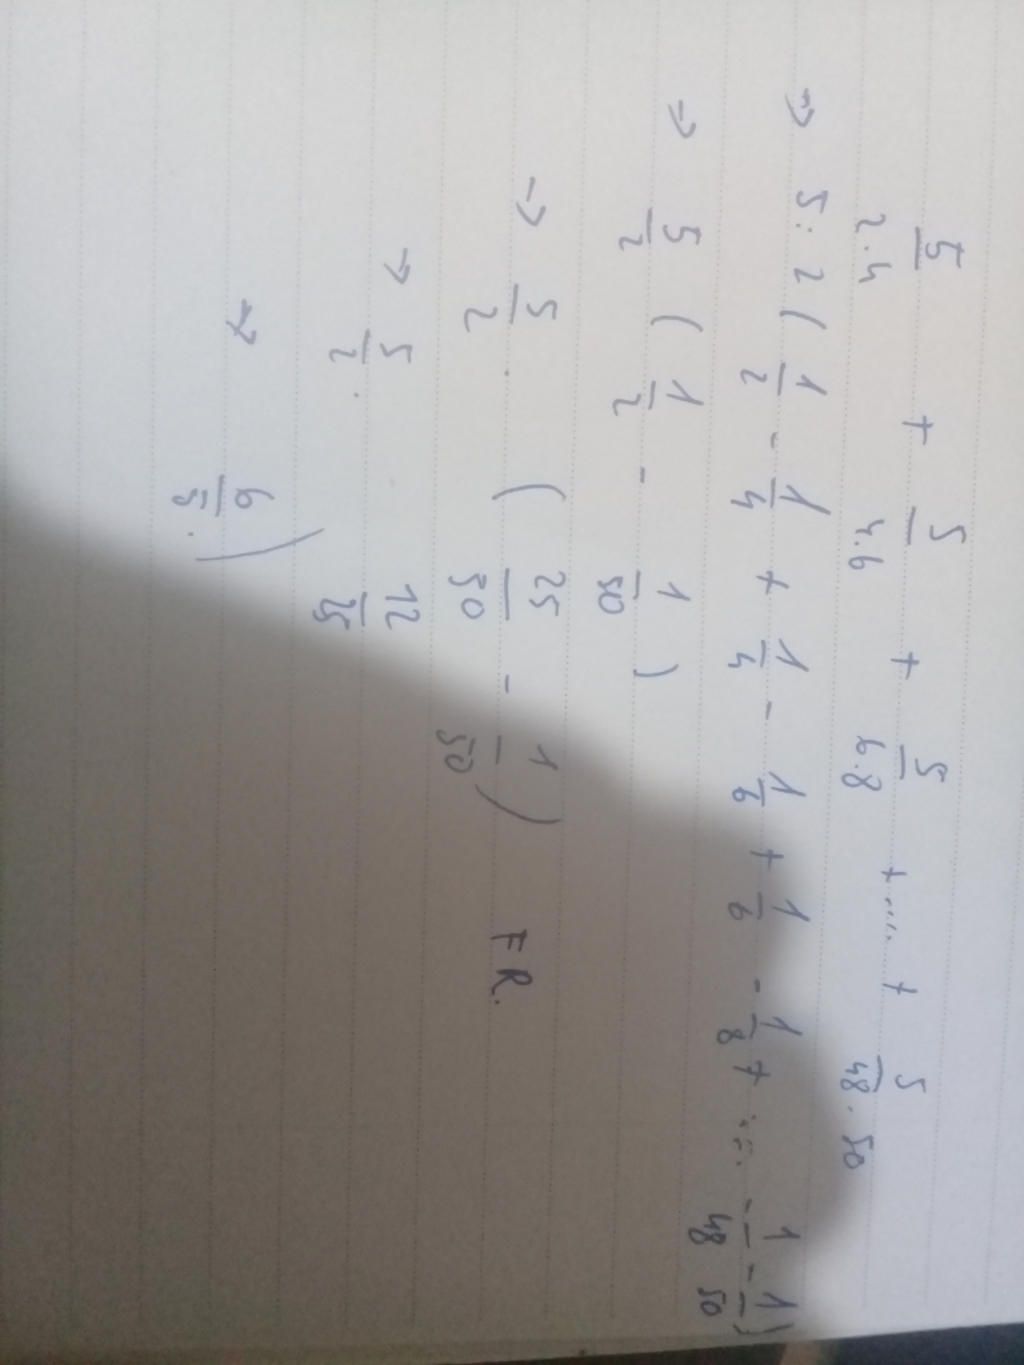 5/(2·4) + 5/(4·6) + 5/(6·8) + ..... + 5/(48·50)
=> 5 : 2 ( 1/2 - 1/4 + 1/4 - 1/6 + 1/6 - 1/8 + .... - 1/48 - 1/50 )
=> 5/2 ( 1/2 - 1/50 )
=> 5/2 · ( 25/50 - 1/50 ) FR.
=> 5/2 · 12/25
=> 6/5 .)